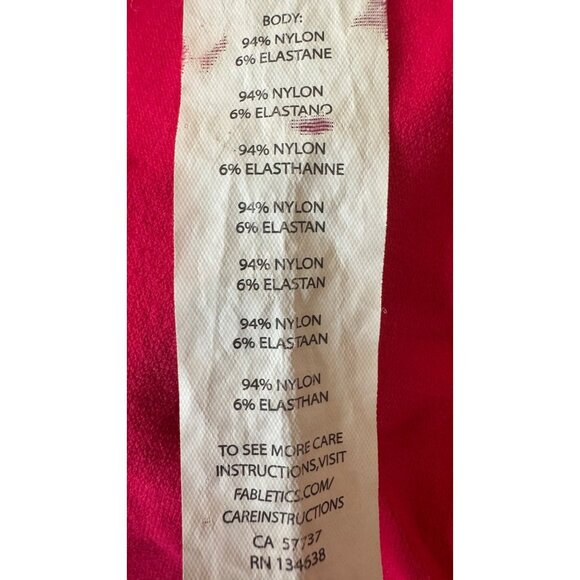 BODY:
94% NYLON
6% ELASTANE
94% NYLON
6% ELASTANO
94% NYLON
6% ELASTHANNE
94% NYLON
6% ELASTAN
94% NYLON
6% ELASTAN
94% NYLON
6% ELASTAAN
94% NYLON
6% ELASTHAN
TO SEE MORE CARE
INSTRUCTIONS,VISIT
FABLETICS.COM/
CAREINSTRUCTIONS
CA 57737
RN 134638